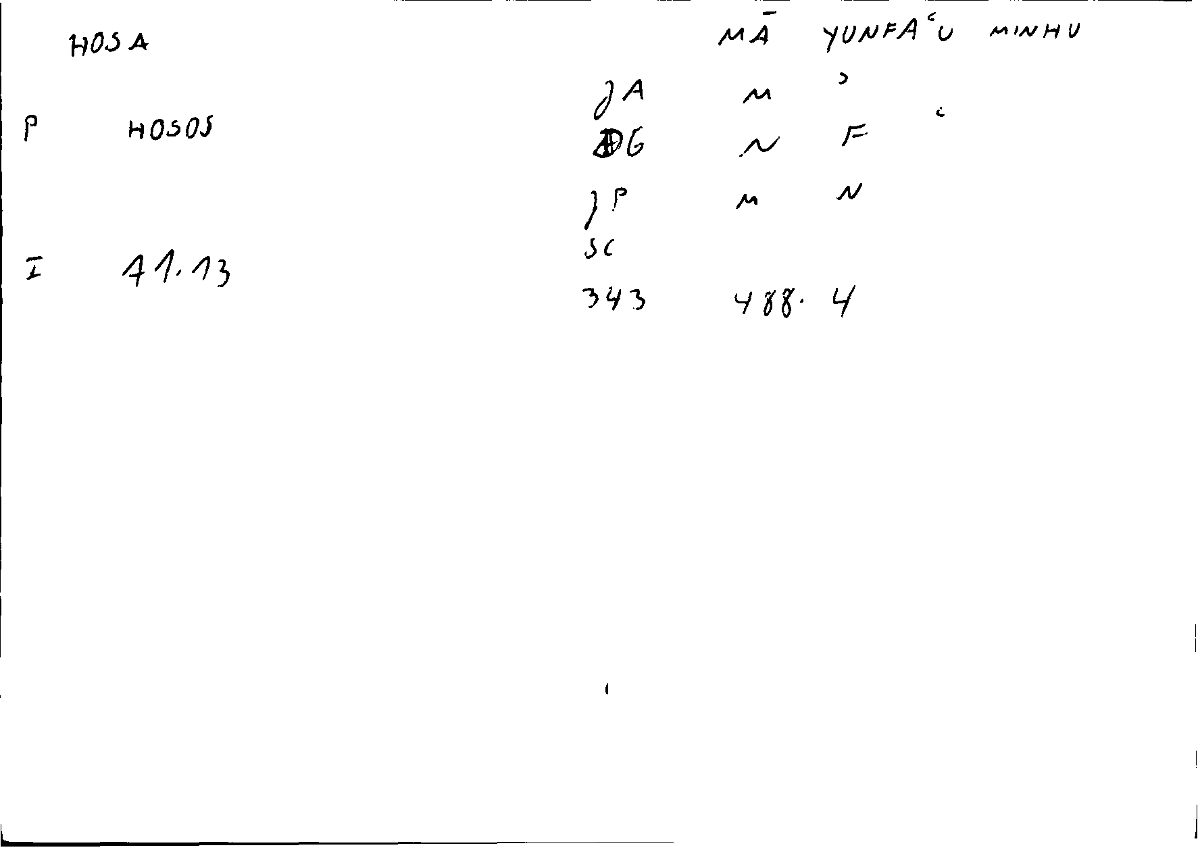 HOSA MĀ YUNFAʿU MINHU
JA M ʾ
P HOSOS DG N F ʿ
JP M N
I 71.13 SC
343 488. 4